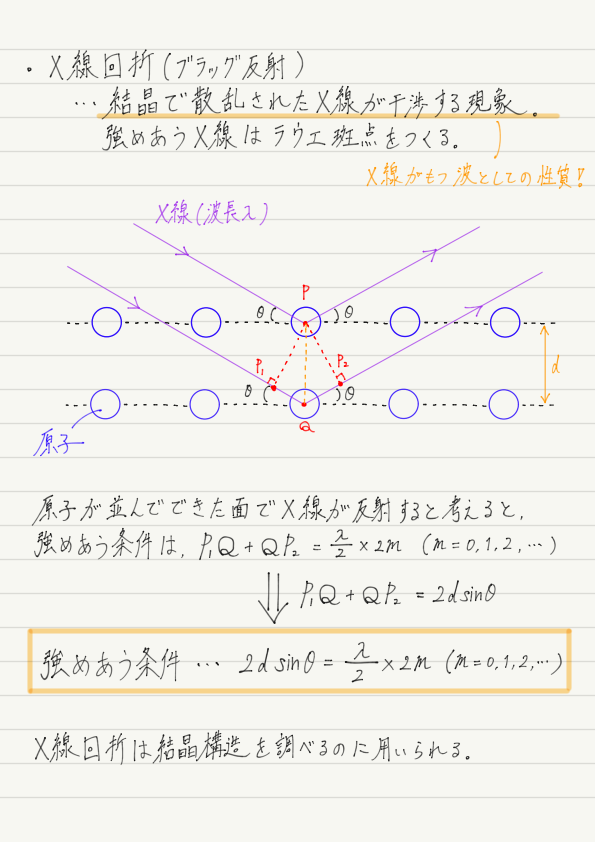 ・X線回折(ブラッグ反射)
… 結晶で散乱されたX線が干渉する現象。
強めあうX線はラウエ斑点をつくる。
X線がもつ波としての性質!
X線(波長λ)
P
θ θ
P₁ P₂
d
θ θ
Q
原子
原子が並んでできた面でX線が反射すると考えると,
強めあう条件は, P₁Q + QP₂ = λ/2 × 2m (m = 0, 1, 2, …)
⇓ P₁Q + QP₂ = 2d sinθ
強めあう条件 … 2d sinθ = λ/2 × 2m (m = 0, 1, 2, …)
X線回折は結晶構造を調べるのに用いられる。